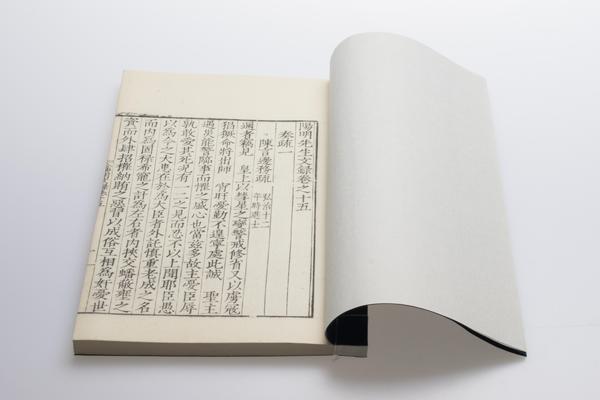 陽明先生文録卷之十五
奏疏一
陳言邊務疏 弘治十二
年時進士
邇者竊見 皇上以彗星之變警戒修省又以虜寇
猖獗命將出師 宵旰憂勤不遑寧處此誠 聖主
遇災能警臨事而懼之盛心也當茲多故主憂臣辱
孰敢愛其死況有一二之見而忍不以上聞耶臣愚
以為今之大患在於為大臣者外託慎重老成之名
而內為固祿希寵之計為左右者內挾交蟠蔽壅之
資而外肆招權納賄之惡習以成俗互相為奸憂世